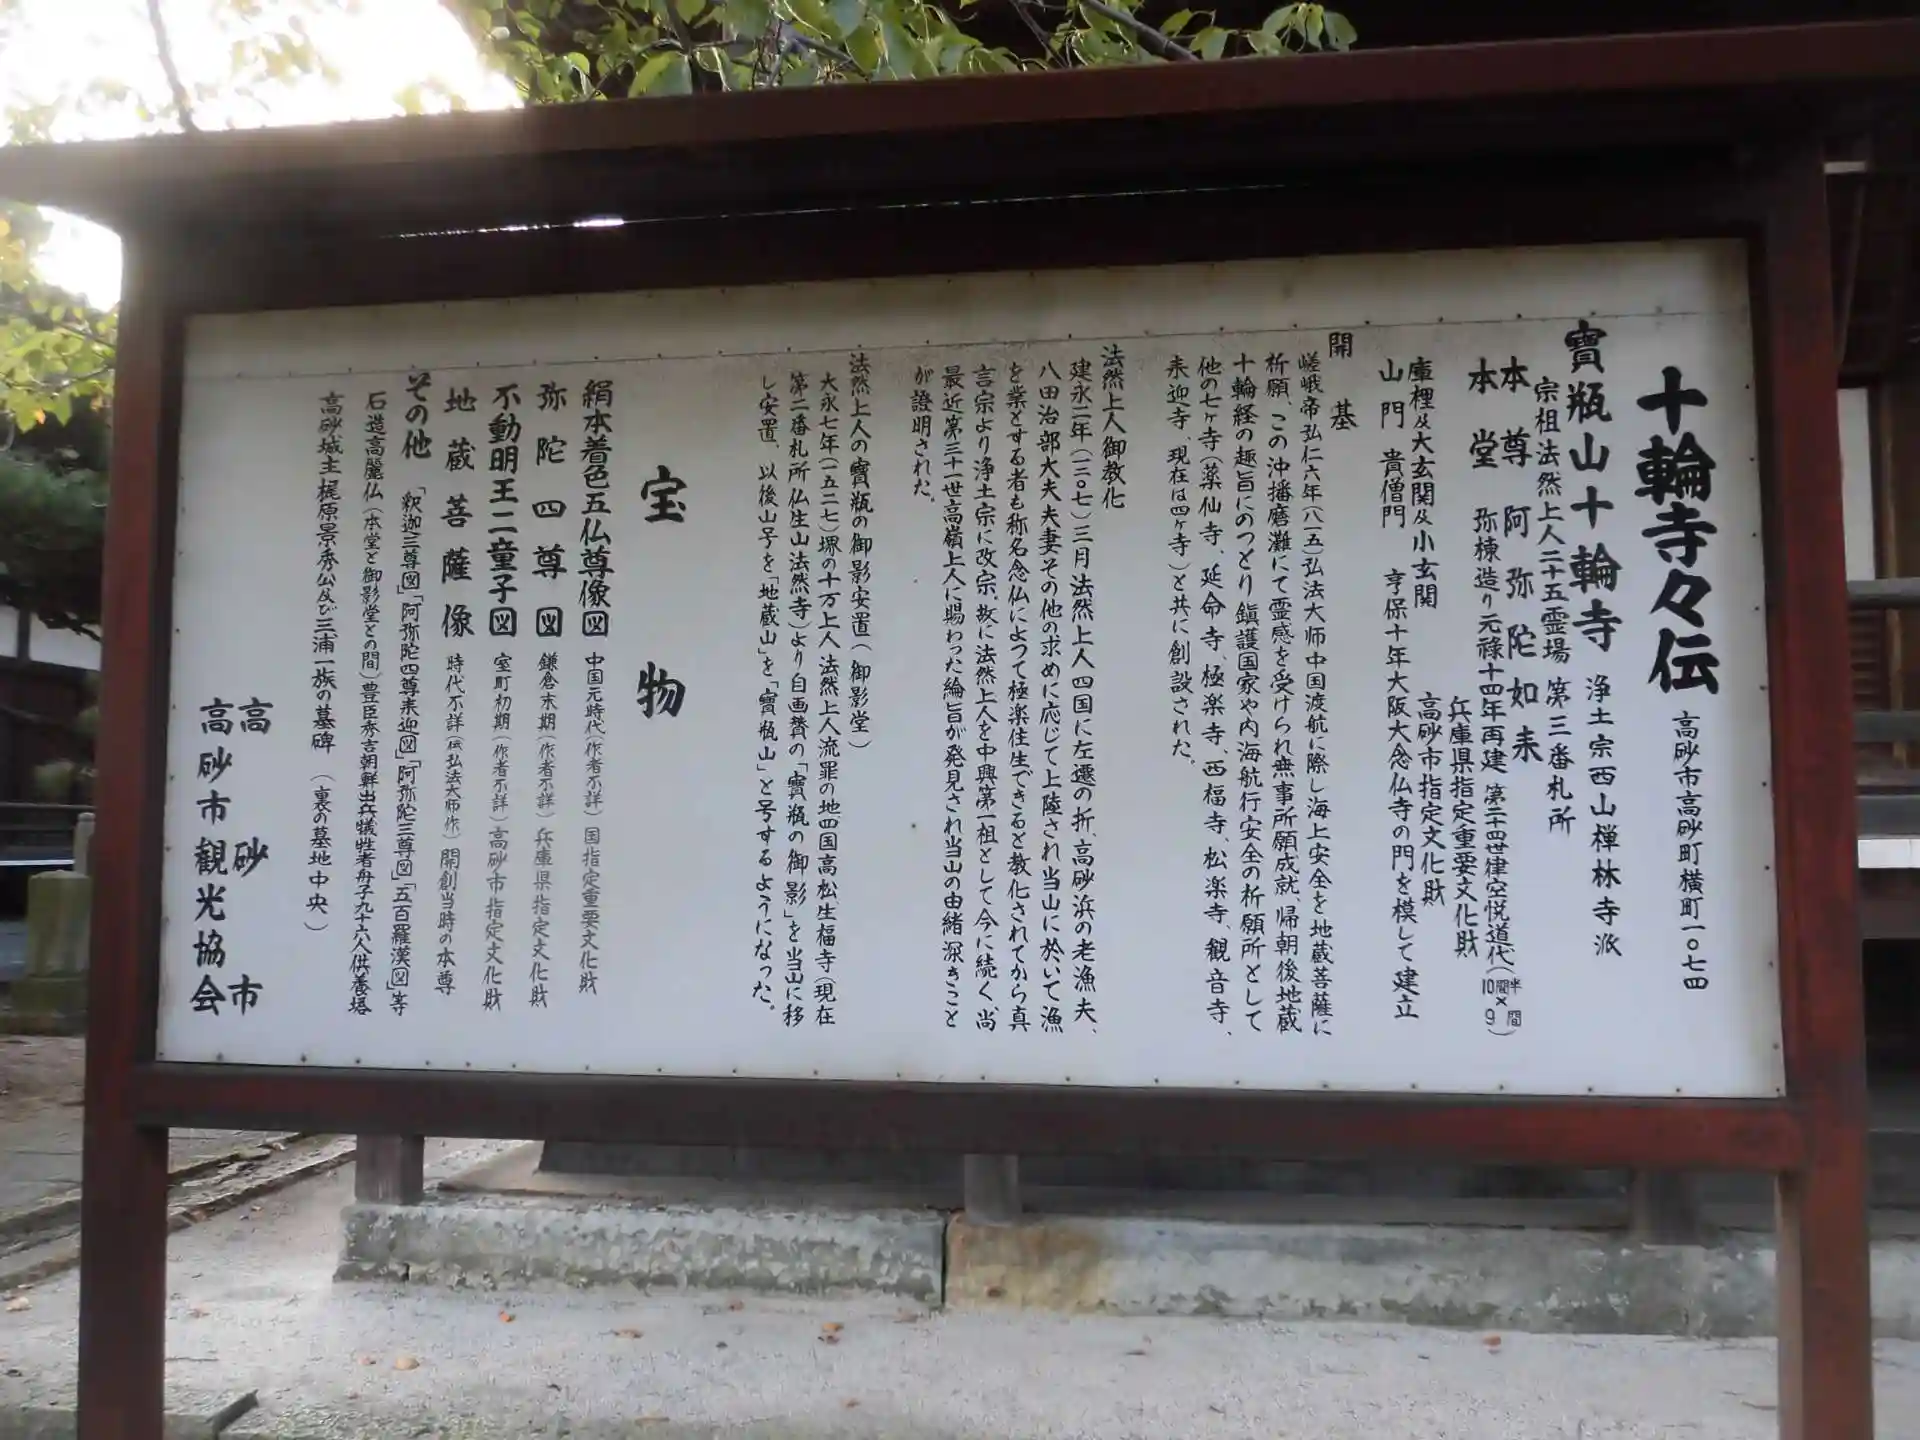 十輪寺々伝 高砂市高砂町横町一〇七四
寶瓶山十輪寺 浄土宗西山禅林寺派
宗祖法然上人二十五霊場 第三番札所
本尊 阿弥陀如来
本堂 弥棟造り元禄十四年再建 第二十四世律空悦道代(10間×9半間)
兵庫県指定重要文化財
高砂市指定文化財
庫裡及大玄関及小玄関
山門 貴僧門 亨保十年大阪大念仏寺の門を模して建立
開基
嵯峨帝弘仁六年(八一五)弘法大师中国渡航に際し海上安全を地蔵菩薩に
祈願、この沖播磨灘にて霊感を受けられ無事所願成就、帰朝後地蔵
十輪経の趣旨にのっとり鎮護国家や内海航行安全の祈願所として
他の七ヶ寺(薬仙寺、延命寺、極楽寺、西福寺、松楽寺、観音寺、
来迎寺、現在は四ヶ寺)と共に創設された。
法然上人御教化
建永二年(一二〇七)三月法然上人四国に左遷の折、高砂浜の老漁夫、
八田治部大夫夫妻その他の求めに応じて上陸され当山に於いて漁
を業とする者も称名念仏によつて極楽住生できると教化されてから真
言宗より浄土宗に改宗、故に法然上人を中興第一祖として今に続く、尚
最近第三十一世高嶺上人に賜わった綸旨が発見され当山の由緒深きこと
が證明された。
法然上人の寶瓶の御影安置(御影堂)
大永七年(一五二七)堺の十万上人、法然上人流罪の地四国高松生福寺(現在
第二番札所仏生山法然寺)より自画賛の「寶瓶の御影」を当山に移
し安置、以後山号を「地蔵山」を「寶瓶山」と号するようになった。
宝物
絹本着色五仏尊像図 中国元時代(作者不詳)国指定重要文化財
弥陀四尊図 鎌倉末期(作者不詳)兵庫県指定文化財
不動明王二童子図 室町初期(作者不詳)高砂市指定文化財
地蔵菩薩像 時代不詳(伝弘法大师作)開創当時の本尊
その他 「釈迦三尊図」「阿弥陀四尊来迎図」「阿弥陀三尊図」「五百羅漢図」等
石造高麗仏(本堂と御影堂との間)豊臣秀吉朝鮮出兵犠牲者舟子九十六人供養塔
高砂城主梶原景秀公及び三浦一族の墓碑 (裏の墓地中央)
高砂市
高砂市観光協会